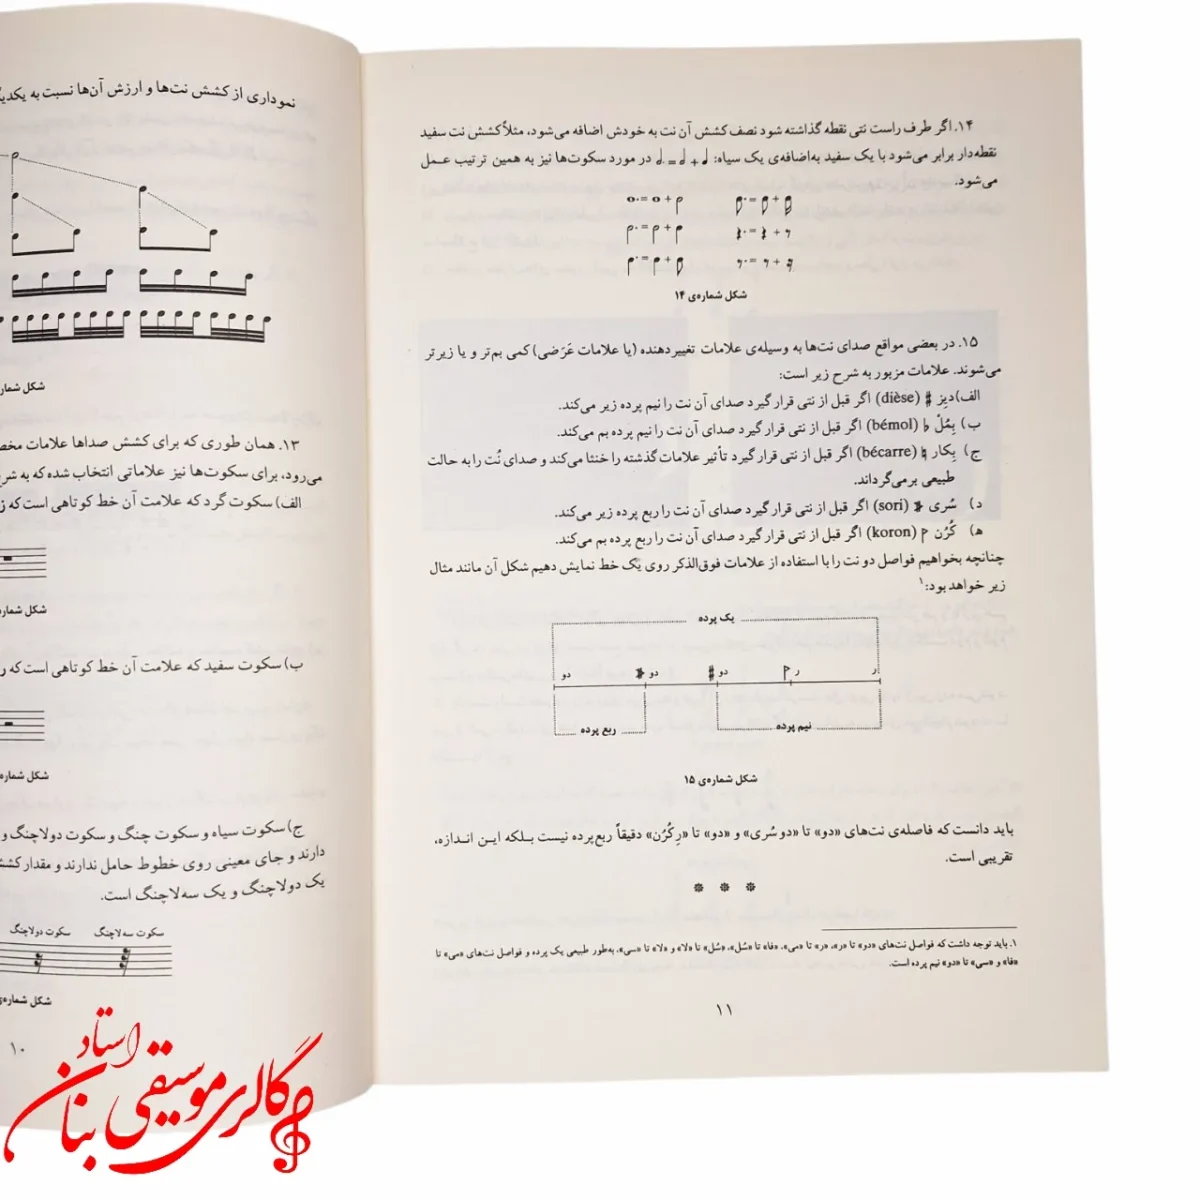 ۱۴. اگر طرف راست نتی نقطه گذاشته شود نصف کشش آن نت به خودش اضافه می‌شود، مثلاً کشش نت سفید
نقطه‌دار برابر می‌شود با یک سفید به‌اضافه‌ی یک سیاه: در مورد سکوت‌ها نیز به همین ترتیب عمل
می‌شود.
شکل شماره‌ی ۱۴
۱۵. در بعضی مواقع صدای نت‌ها به وسیله‌ی علامات تغییردهنده (یا علامات عَرَضی) کمی بم‌تر و یا زیرتر
می‌شوند. علامات مزبور به شرح زیر است:
الف) دیِز ♯ (dièse) اگر قبل از نتی قرار گیرد صدای آن نت را نیم پرده زیر می‌کند.
ب) بِمُلْ ♭ (bémol) اگر قبل از نتی قرار گیرد صدای آن نت را نیم پرده بم می‌کند.
ج) بِکار ♮ (bécarre) اگر قبل از نتی قرار گیرد تأثیر علامات گذشته را خنثا می‌کند و صدای نُت را به حالت
طبیعی برمی‌گرداند.
د) سُری (sori) اگر قبل از نتی قرار گیرد صدای آن نت را ربع پرده زیر می‌کند.
ه) کُرُن (koron) اگر قبل از نتی قرار گیرد صدای آن نت را ربع پرده بم می‌کند.
چنانچه بخواهیم فواصل دو نت را با استفاده از علامات فوق‌الذکر روی یک خط نمایش دهیم شکل آن مانند مثال
زیر خواهد بود:۱
یک پرده
دو دو دو ♯ ر ر
ربع پرده نیم پرده
شکل شماره‌ی ۱۵
باید دانست که فاصله‌ی نت‌های «دو» تا «دو سُری» و «دو» تا «رِ کُرُن» دقیقاً ربع‌پرده نیست بلکه این اندازه،
تقریبی است.
۱. باید توجه داشت که فواصل نت‌های «دو» تا «ر»، «ر» تا «می»، «فا» تا «سُل»، «سُل» تا «لا» و «لا» تا «سی»، به‌طور طبیعی یک پرده و فواصل نت‌های «می» تا
«فا» و «سی» تا «دو» نیم پرده است.
۱۱
نموداری از کشش نت‌ها و ارزش آن‌ها نسبت به
شکل
۱۳. همان طوری که برای کشش صداها علامات
می‌رود، برای سکوت‌ها نیز علاماتی انتخاب شده که به
الف) سکوت گرد که علامت آن خط کوتاهی است که
شکل
ب) سکوت سفید که علامت آن خط کوتاهی است که
شکل
ج) سکوت سیاه و سکوت چنگ و سکوت دولاچنگ و
دارند و جای معینی روی خطوط حامل ندارند و مقدار
یک دولاچنگ و یک سه‌لاچنگ است.
سکوت سه‌لاچنگ سکوت دولاچنگ
شکل
۱۰
گالری موسیقی استاد بنان